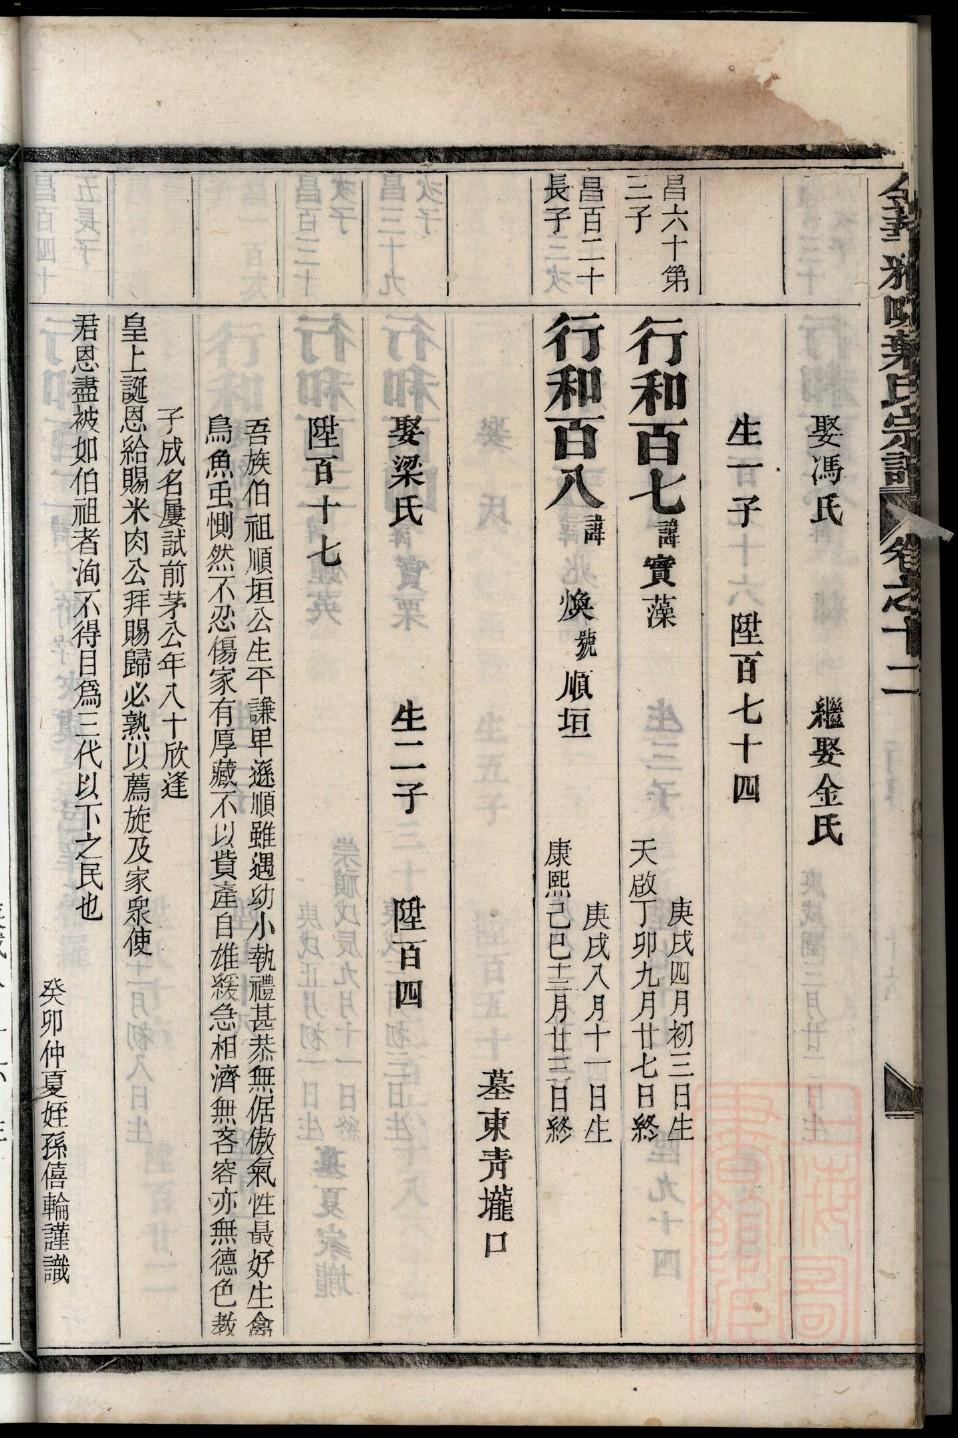 葉氏宗譜 卷之十二
娶馮氏 繼娶金氏
生一子 陞百七十四
昌六十第
三子
行和百七 諱實藻
庚戌四月初三日生
天啟丁卯九月廿七日終
昌百二十
長子
行和百八 諱煥 號順垣
庚戌八月十一日生
康熙己巳十二月廿三日終
墓東青壠口
娶梁氏 生二子 陞百四
陞百十七
吾族伯祖順垣公生平謙卑遜順雖遇幼小執禮甚恭無倨傲氣性最好生禽
鳥魚虫惻然不忍傷家有厚藏不以貲產自雄緩急相濟無吝容亦無德色教
子成名屢試前茅公年八十欣逢
皇上誕恩給賜米肉公拜賜歸必熟以薦旋及家衆使
君恩盡被如伯祖者洵不得目爲三代以下之民也
癸卯仲夏姪孫僖輪謹識